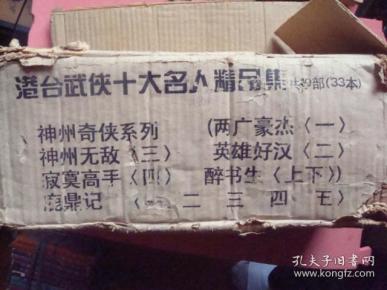 港台武侠十大名人精品集共9部(33本)
神州奇侠系列 (两广豪杰〈一〉
神州无敌〈三〉 英雄好汉〈二〉
寂寞高手〈四〉 醉书生〈上下〉)
鹿鼎记〈一 二 三 四 五〉
孔夫子旧书网
www.kongfz.com